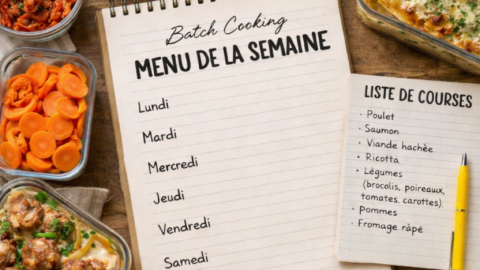 Batch Cooking
MENU DE LA SEMAINE
Lundi
Mardi
Mercredi
Jeudi
Vendredi
Samedi
LISTE DE COURSES
· Poulet
· Saumon
· Viande hachée
· Ricotta
· Légumes
(brocolis, poireaux,
tomates, carottes).
· Pommes
· Fromage râpé